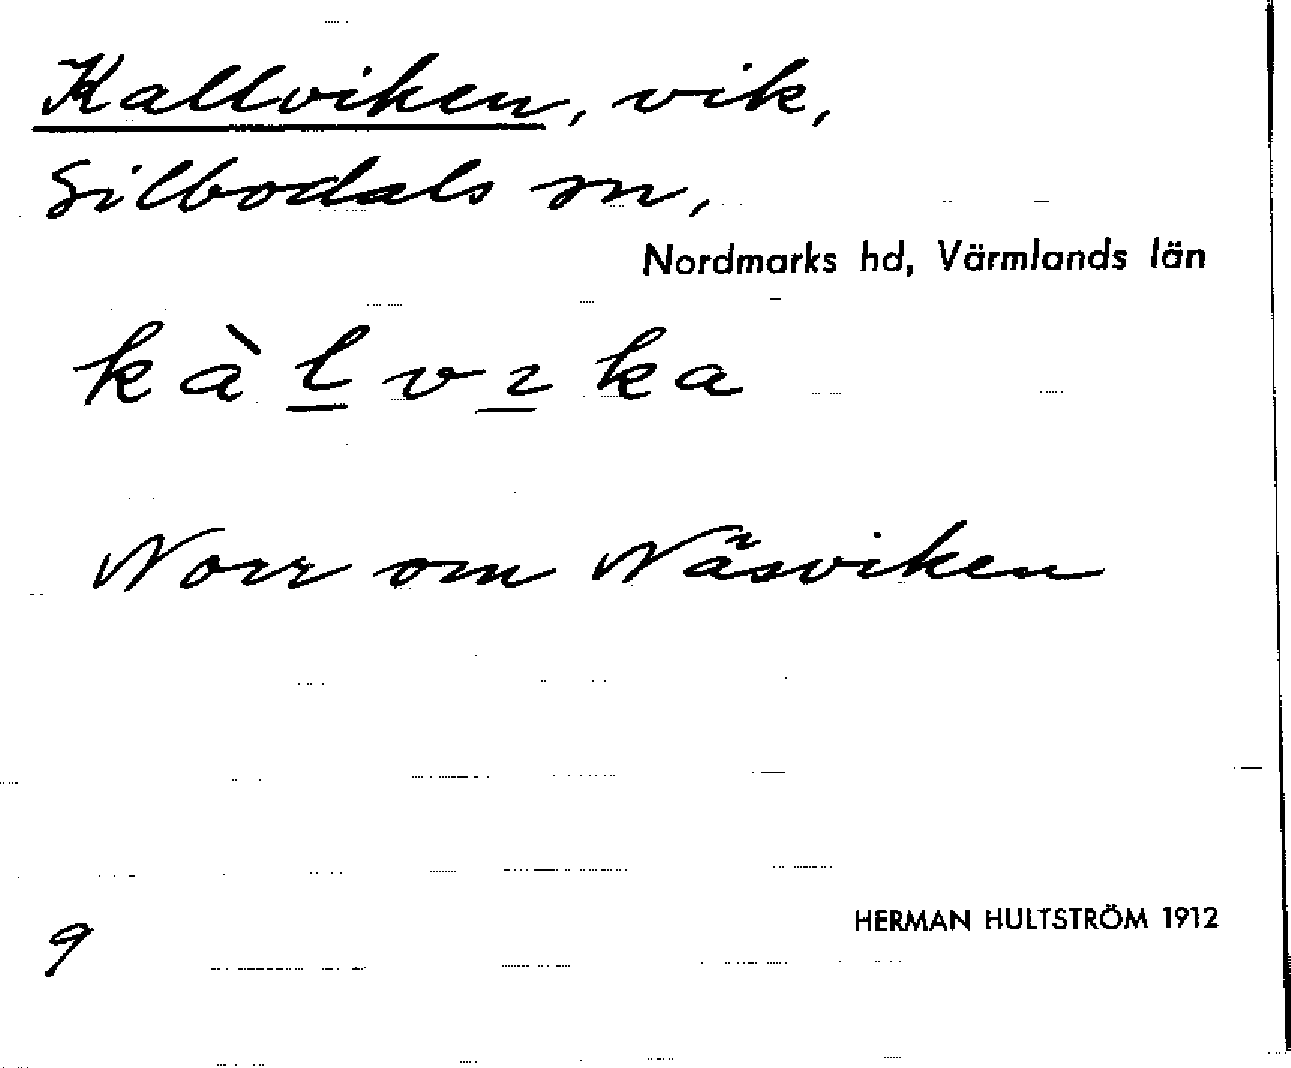 Kallviken, vik,
Silbodals sn,
Nordmarks hd, Värmlands län
kàl̲vɿ̲ka
Norr om Näsviken
HERMAN HULTSTRÖM 1912
9